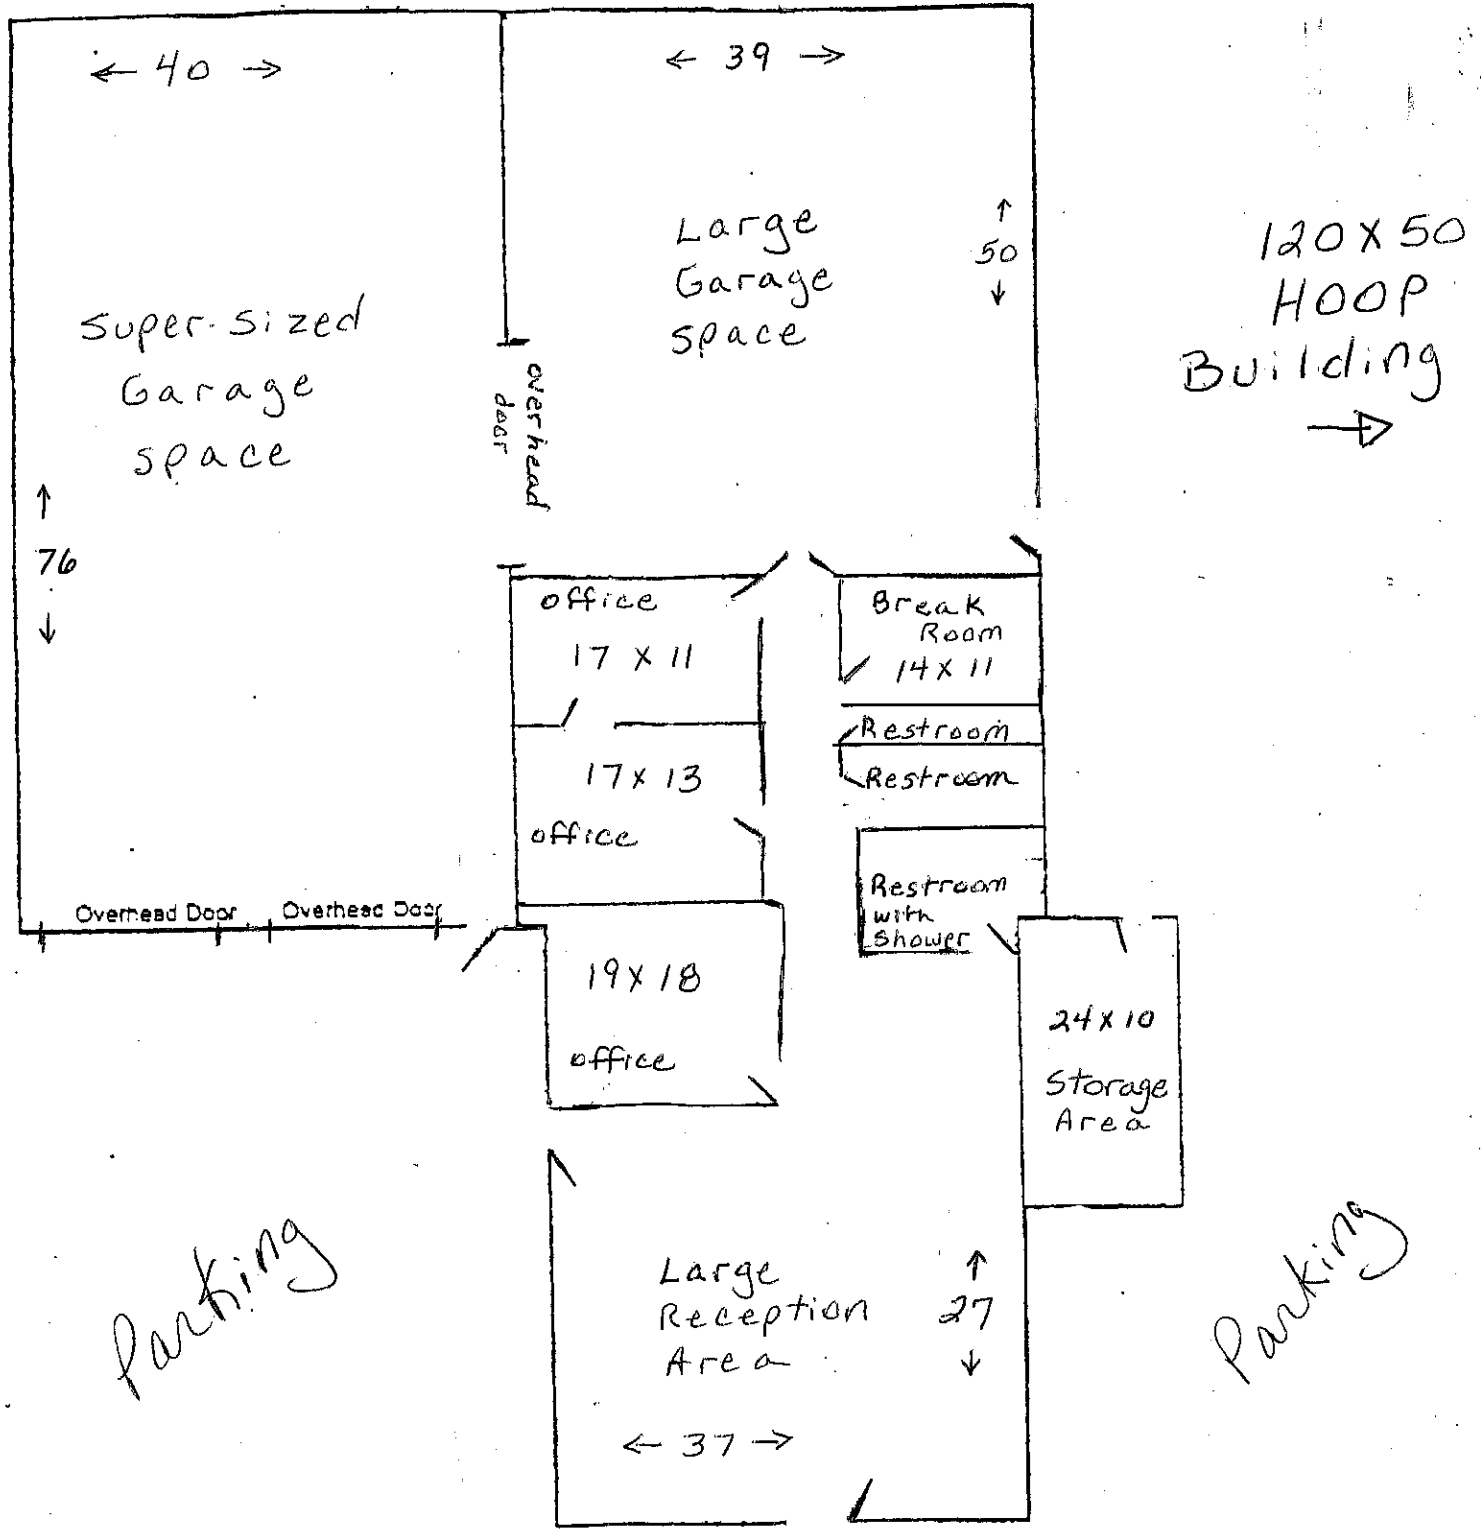 ← 40 →
← 39 →
Large
Garage
space
↑
50
↓
120 X 50
HOOP
Building
→
Super-Sized
Garage
space
↑
76
↓
overhead
door
office
17 X 11
Break
Room
14 X 11
Restroom
Restroom
17 X 13
office
Restroom
with
shower
Overhead Door
Overhead Door
19 X 18
office
24 X 10
Storage
Area
Parking
Large
Reception
Area
↑
27
↓
← 37 →
Parking